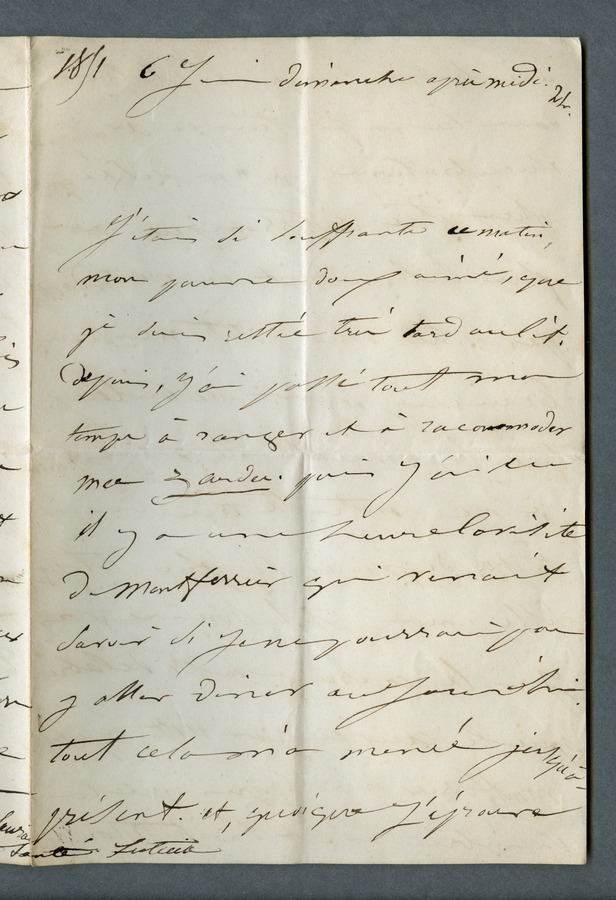 1851 6 Juin dimanche après midi.
J'étais si souffrante ce matin,
mon pauvre doux aimé, que
je suis restée très tard au lit.
Depuis, j'ai passé tout mon
temps à ranger et à racommoder
mes zardes. puis j'ai eu
il y a une heure la visite
de Montferrier qui venait
savoir si je ne pourrais pas
y aller diner aujourd'hui.
tout cela m'a menée jusqu'à
présent. et, quoique j'éprouve